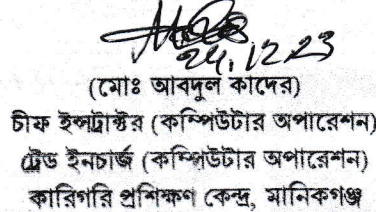 24.12.23
(মোঃ আবদুল কাদের)
চীফ ইন্সট্রাক্টর (কম্পিউটার অপারেশন)
ট্রেড ইনচার্জ (কম্পিউটার অপারেশন)
কারিগরি প্রশিক্ষণ কেন্দ্র, মানিকগঞ্জ